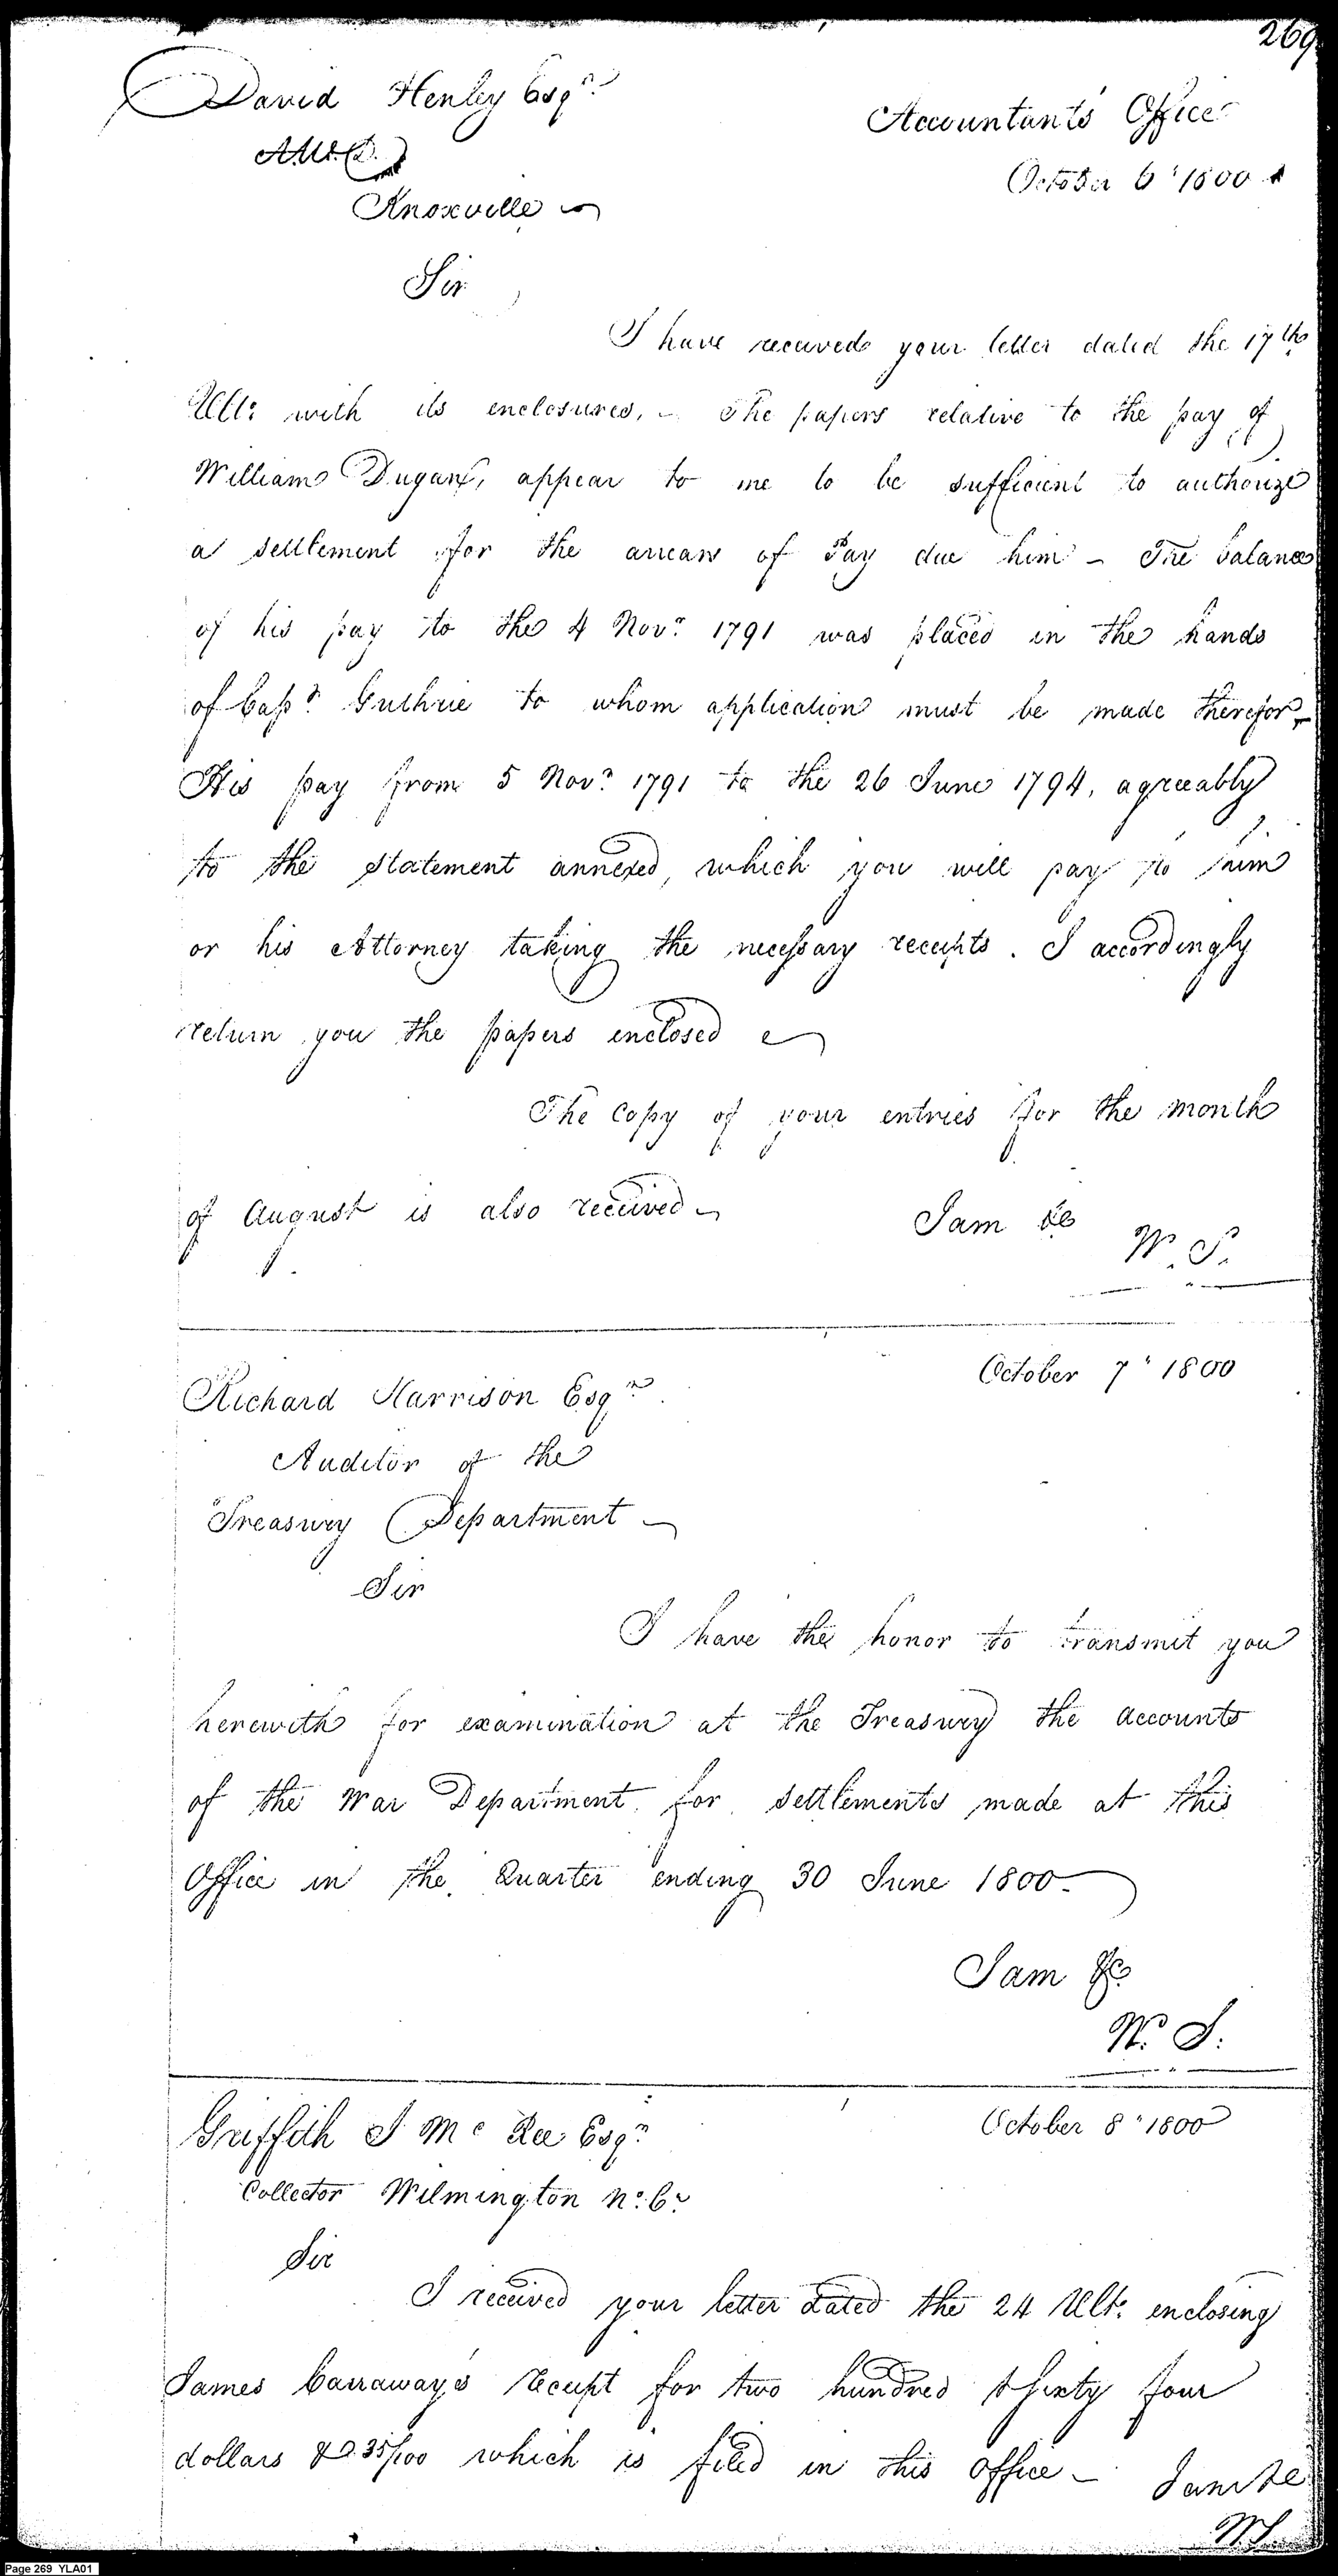 269
David Henley Esqr.
A.W.D.
Knoxville
Accountant's Office
October 6th 1800
Sir
I have received your letter dated the 17th
Ulto: with its enclosures, - The papers relative to the pay of
William Dugan, appear to me to be sufficient to authorize
a settlement for the arrears of Pay due him - The balance
of his pay to the 4 Novr. 1791 was placed in the hands
of Capt. Guthrie to whom application must be made therefor -
His pay from 5 Novr. 1791 to the 26 June 1794, agreeably
to the statement annexed, which you will pay to him
or his Attorney taking the necessary receipts. I accordingly
return you the papers enclosed
The Copy of your entries for the month
of August is also received -
I am &c
W. S.
October 7th 1800
Richard Harrison Esqr.
Auditor of the
Treasury Department -
Sir
I have the honor to transmit you
herewith for examination at the Treasury the accounts
of the War Department for settlements made at this
Office in the Quarter ending 30 June 1800 -
I am &c
W. S.
October 8th 1800
Griffith J Mc Ree Esqr.
Collector Wilmington No. Ca
Sir
I received your letter dated the 24 Ulto: enclosing
James Carraway's receipt for two hundred & sixty four
dollars & 35/100 which is filed in this office - I am &c
W S.
Page 269 YLA01